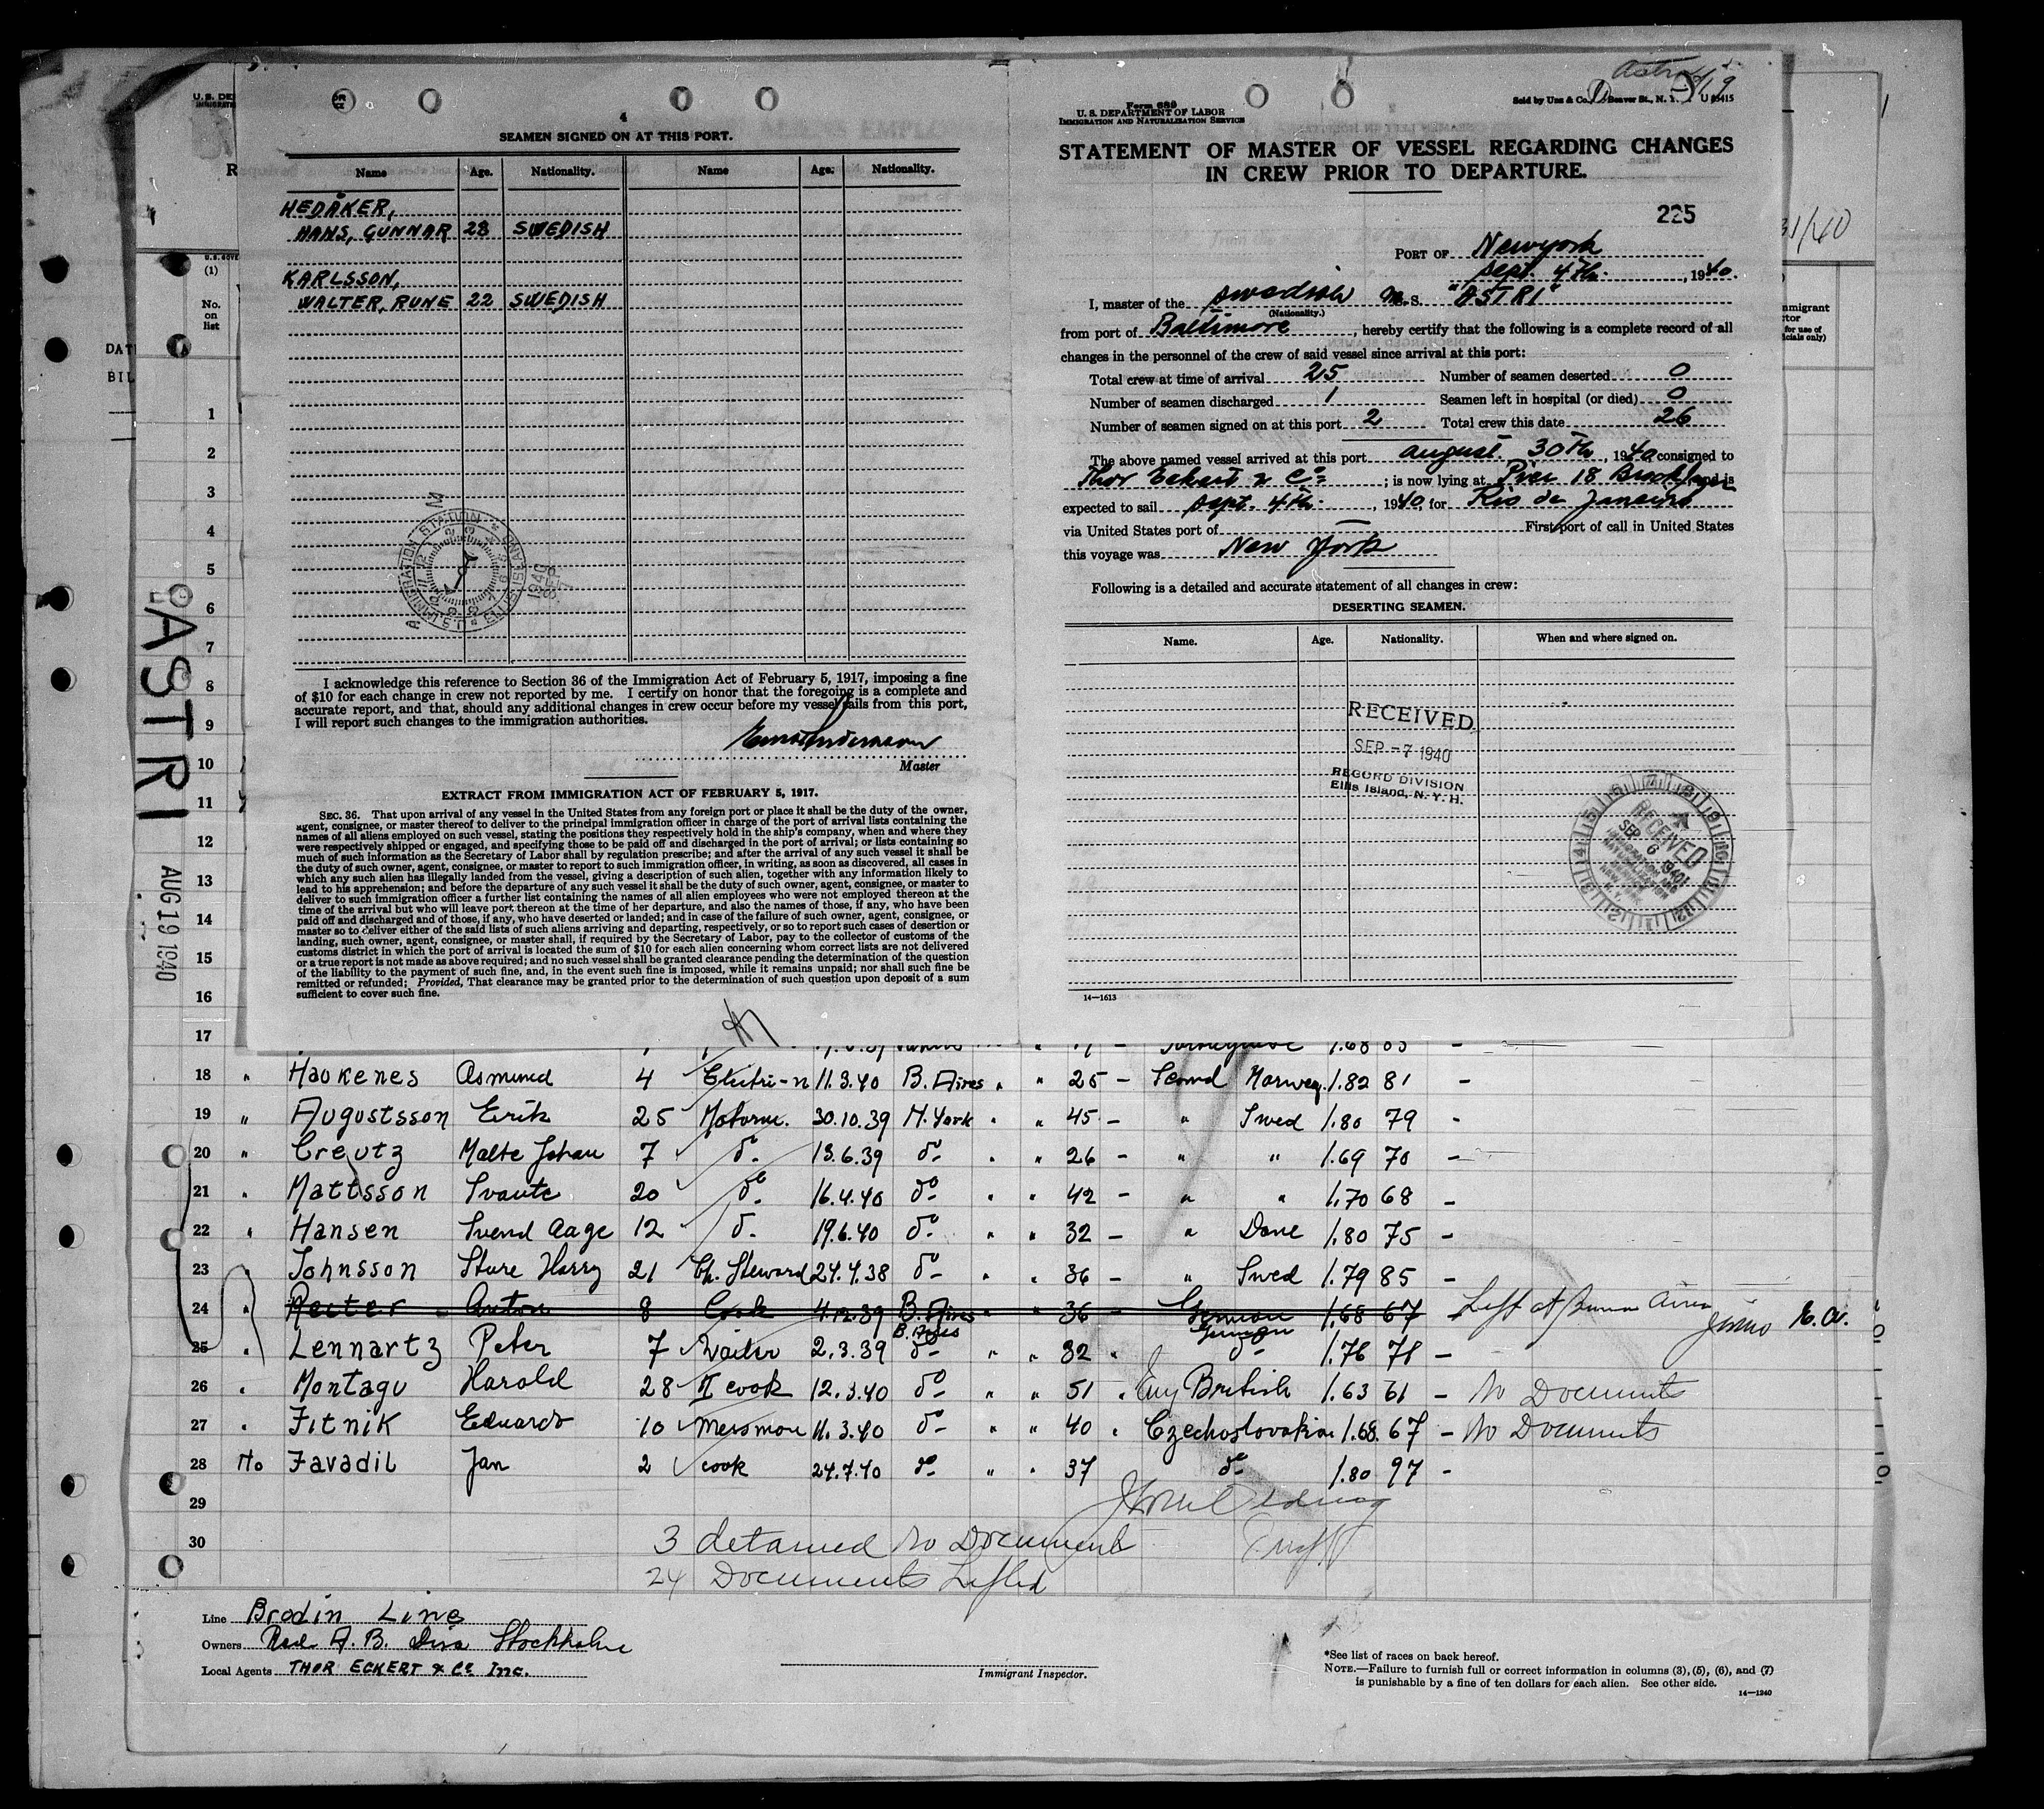 SEAMEN SIGNED ON AT THIS PORT.
Name Age. Nationality. Name Age. Nationality.
HEDÅKER,
HANS, GUNNAR 28 SWEDISH
KARLSSON,
WALTER, RUNE 22 SWEDISH
I acknowledge this reference to Section 36 of the Immigration Act of February 5, 1917, imposing a fine
of $10 for each change in crew not reported by me. I certify on honor that the foregoing is a complete and
accurate report, and that, should any additional changes in crew occur before my vessel sails from this port,
I will report such changes to the immigration authorities.
Master
EXTRACT FROM IMMIGRATION ACT OF FEBRUARY 5, 1917.
SEC. 36. That upon arrival of any vessel in the United States from any foreign port or place it shall be the duty of the owner,
agent, consignee, or master thereof to deliver to the principal immigration officer in charge of the port of arrival lists containing the
names of all aliens employed on such vessel, stating the positions they respectively hold in the ship's company, when and where they
were respectively shipped or engaged, and specifying those to be paid off and discharged in the port of arrival; or lists containing so
much of such information as the Secretary of Labor shall by regulation prescribe; and after the arrival of any such vessel it shall be
the duty of such owner, agent, consignee, or master to report to such immigration officer, in writing, as soon as discovered, all cases in
which any such alien has illegally landed from the vessel, giving a description of such alien, together with any information likely to
lead to his apprehension; and before the departure of any such vessel it shall be the duty of such owner, agent, consignee, or master to
deliver to such immigration officer a further list containing the names of all alien employees who were not employed thereon at the
time of the arrival but who will leave port thereon at the time of her departure, and also the names of those, if any, who have been
paid off and discharged and of those, if any, who have deserted or landed; and in case of the failure of such owner, agent, consignee, or
master so to deliver either of the said lists of such aliens arriving and departing, respectively, or so to report such cases of desertion or
landing, such owner, agent, consignee, or master shall, if required by the Secretary of Labor, pay to the collector of customs of the
customs district in which the port of arrival is located the sum of $10 for each alien concerning whom correct lists are not delivered
or a true report is not made as above required; and no such vessel shall be granted clearance pending the determination of the question
of the liability to the payment of such fine, and, in the event such fine is imposed, while it remains unpaid; nor shall such fine be
remitted or refunded; Provided, That clearance may be granted prior to the determination of such question upon deposit of a sum
sufficient to cover such fine.
Form 689
U. S. DEPARTMENT OF LABOR
IMMIGRATION AND NATURALIZATION SERVICE
STATEMENT OF MASTER OF VESSEL REGARDING CHANGES
IN CREW PRIOR TO DEPARTURE.
225
PORT OF New york
sept. 4th. , 1940.
I, master of the swedish M.S. "ASTRI"
(Nationality.)
from port of Baltimore , hereby certify that the following is a complete record of all
changes in the personnel of the crew of said vessel since arrival at this port:
Total crew at time of arrival 25 Number of seamen deserted 0
Number of seamen discharged 1 Seamen left in hospital (or died) 0
Number of seamen signed on at this port 2 Total crew this date 26
The above named vessel arrived at this port august 30th , 1940 consigned to
Thor Eckert & Co ; is now lying at Pier 18 Brooklyn and is
expected to sail sept. 4th. , 1940, for Rio de Janeiro
via United States port of — First port of call in United States
this voyage was New York
Following is a detailed and accurate statement of all changes in crew:
DESERTING SEAMEN.
Name. Age. Nationality. When and where signed on.
RECEIVED
SEP -7 1940
RECORD DIVISION
Ellis Island, N. Y. H.
RECEIVED
SEP 6 1940
14—1613
31/40
ASTRI
AUG 19 1940
No.
on
list
1
2
3
4
5
6
7
8
9
10
11
12
13
14
15
16
17
18 " Haukenes Asmund 4 Electri-n 11.3.40 B. Aires " " 25 - Scand Norweg. 1.82 81 -
19 " Augustsson Erik 25 Motorm. 30.10.39 N. York " " 45 - " Swed 1.80 79 -
20 " Creutz Malte Johan 7 do 13.6.39 do " " 26 - " " 1.69 70 -
21 " Mattsson Svante 20 do 16.4.40 do " " 42 - " " 1.70 68 -
22 " Hansen Svend Aage 12 do 19.6.40 do " " 32 - " Dane 1.80 75 -
23 " Johnsson Sture Harry 21 Ch. Steward 24.4.38 do " " 36 - " Swed 1.79 85 -
24 " Recter Anton 8 Cook 4.12.39 B. Aires " " 36 - German 1.68 67 - Left at Buenos Aires
25 " Lennartz Peter 7 Waiter 2.3.39 B. Aires do " " 32 " German do 1.76 71 -
26 " Montagu Harold 28 II cook 12.3.40 do " " 51 " Eng British 1.63 61 - No Documents
27 " Fitnik Eduard 10 Messman 11.3.40 do " " 40 " Czechoslovakia 1.68 67 - No Documents
28 No Zavadil Jan 2 cook 24.7.40 do " " 37 do 1.80 97 -
29
30
3 detained No Document
24 Documents Lifted
Line Brodin Line
Owners Red. A. B. Disa Stockholm
Local Agents THOR ECKERT & Co Inc.
Immigrant Inspector.
*See list of races on back hereof.
NOTE.—Failure to furnish full or correct information in columns (3), (5), (6), and (7)
is punishable by a fine of ten dollars for each alien. See other side.
14—1240